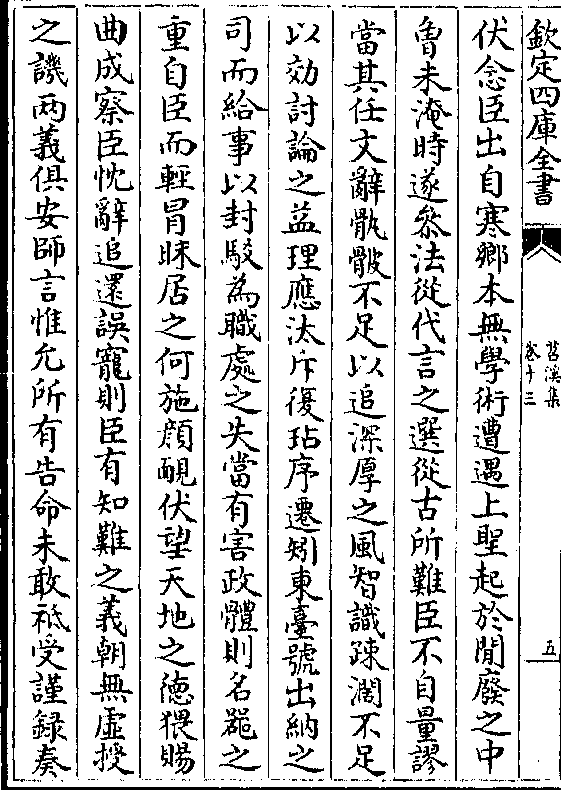 欽定四庫全書
苕溪集
卷十三
五
伏念臣出自寒鄉本無學術遭遇上聖起於閒廢之中
曾未淹時遂叅法從代言之選從古所難臣不自量謬
當其任文辭骫骳不足以追深厚之風智識踈濶不足
以効討論之益理應汰斥復玷序遷矧東臺號出納之
司而給事以封駁為職處之失當有害政體則名器之
重自臣而輕冒昧居之何施顔靦伏望天地之德猥賜
曲成察臣忱辭追還誤寵則臣有知難之義朝無虚授
之譏兩義俱安師言惟允所有告命未敢祗受謹録奏